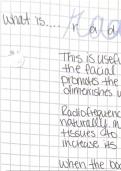 what is.... r a d
This is usef
the facial
promotes the
diminishes w
Radiofrequenc
naturally in
tissues to
increase its
when the bod